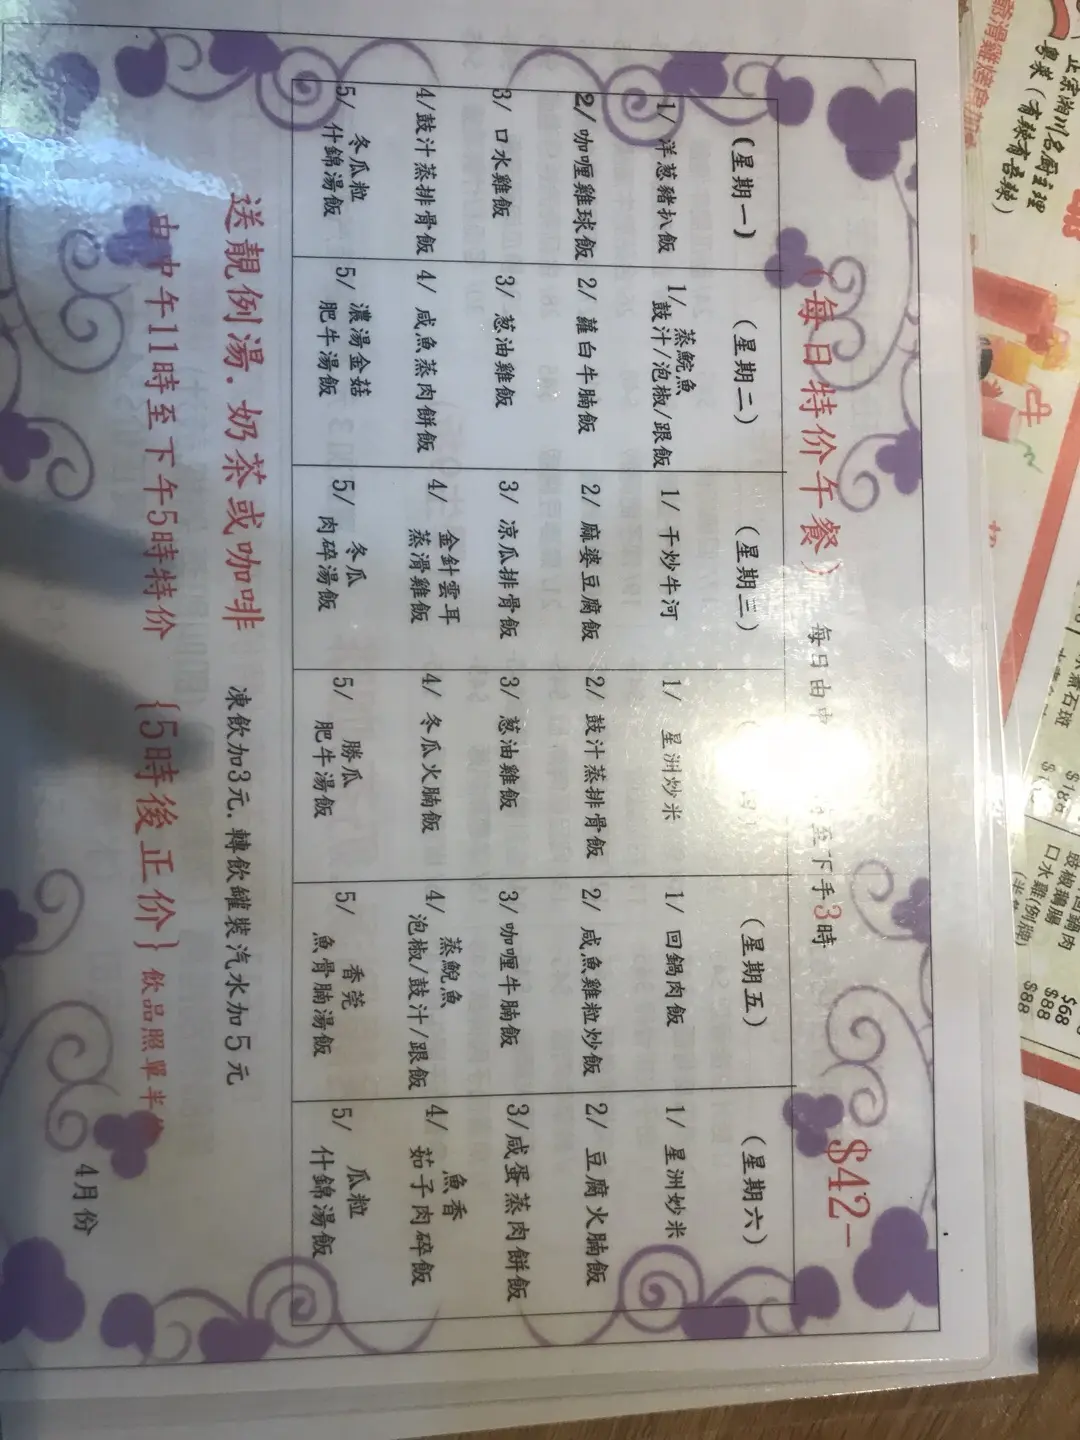 (每日特价午餐)
每日由中
至下手3時
$42-
(星期一)
1/ 洋葱豬扒飯
2/ 咖喱雞球飯
3/ 口水雞飯
4/鼓汁蒸排骨飯
5/ 冬瓜粒
什錦湯飯
(星期二)
1/ 蒸鯇魚
鼓汁/泡椒/跟飯
2/ 蘿白牛腩飯
3/ 葱油雞飯
4/ 咸魚蒸肉餅飯
5/ 濃湯金菇
肥牛湯飯
(星期三)
1/ 干炒牛河
2/ 麻婆豆腐飯
3/ 凉瓜排骨飯
4/ 金針雲耳
蒸滑雞飯
5/ 冬瓜
肉碎湯飯
1/ 星洲炒米
2/ 鼓汁蒸排骨飯
3/ 葱油雞飯
4/ 冬瓜火腩飯
5/ 勝瓜
肥牛湯飯
(星期五)
1/ 回鍋肉飯
2/ 咸魚雞粒炒飯
3/ 咖喱牛腩飯
4/ 蒸鯇魚
泡椒/鼓汁/跟飯
5/ 香莞
魚骨腩湯飯
(星期六)
1/ 星洲炒米
2/ 豆腐火腩飯
3/咸蛋蒸肉餅飯
4/ 魚香
茄子肉碎飯
5/ 瓜粒
什錦湯飯
送靚例湯.奶茶或咖啡
凍飲加3元.轉飲罐裝汽水加5元
由中午11時至下午5時特价
{5時後正价}飲品照單半
4月份
正宗湘川名廚主理
粵菜(有辣有吾辣)
口水雞(例牌)
$68
$88
$88